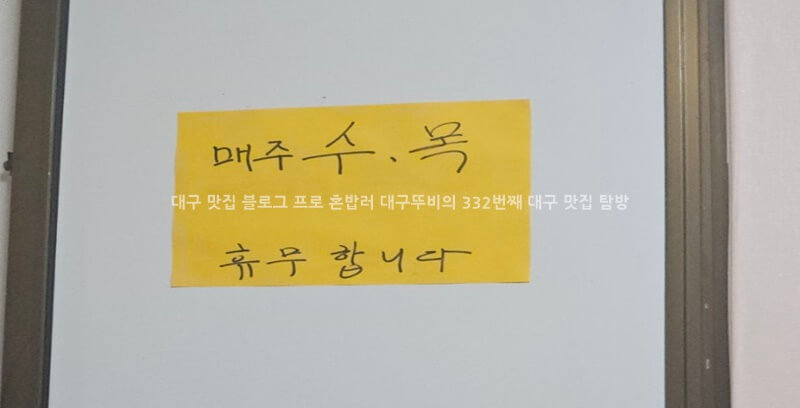 매주 수.목
대구 맛집 블로그 프로 혼밥러 대구뚜비의 332번째 대구 맛집 탐방
휴무합니다